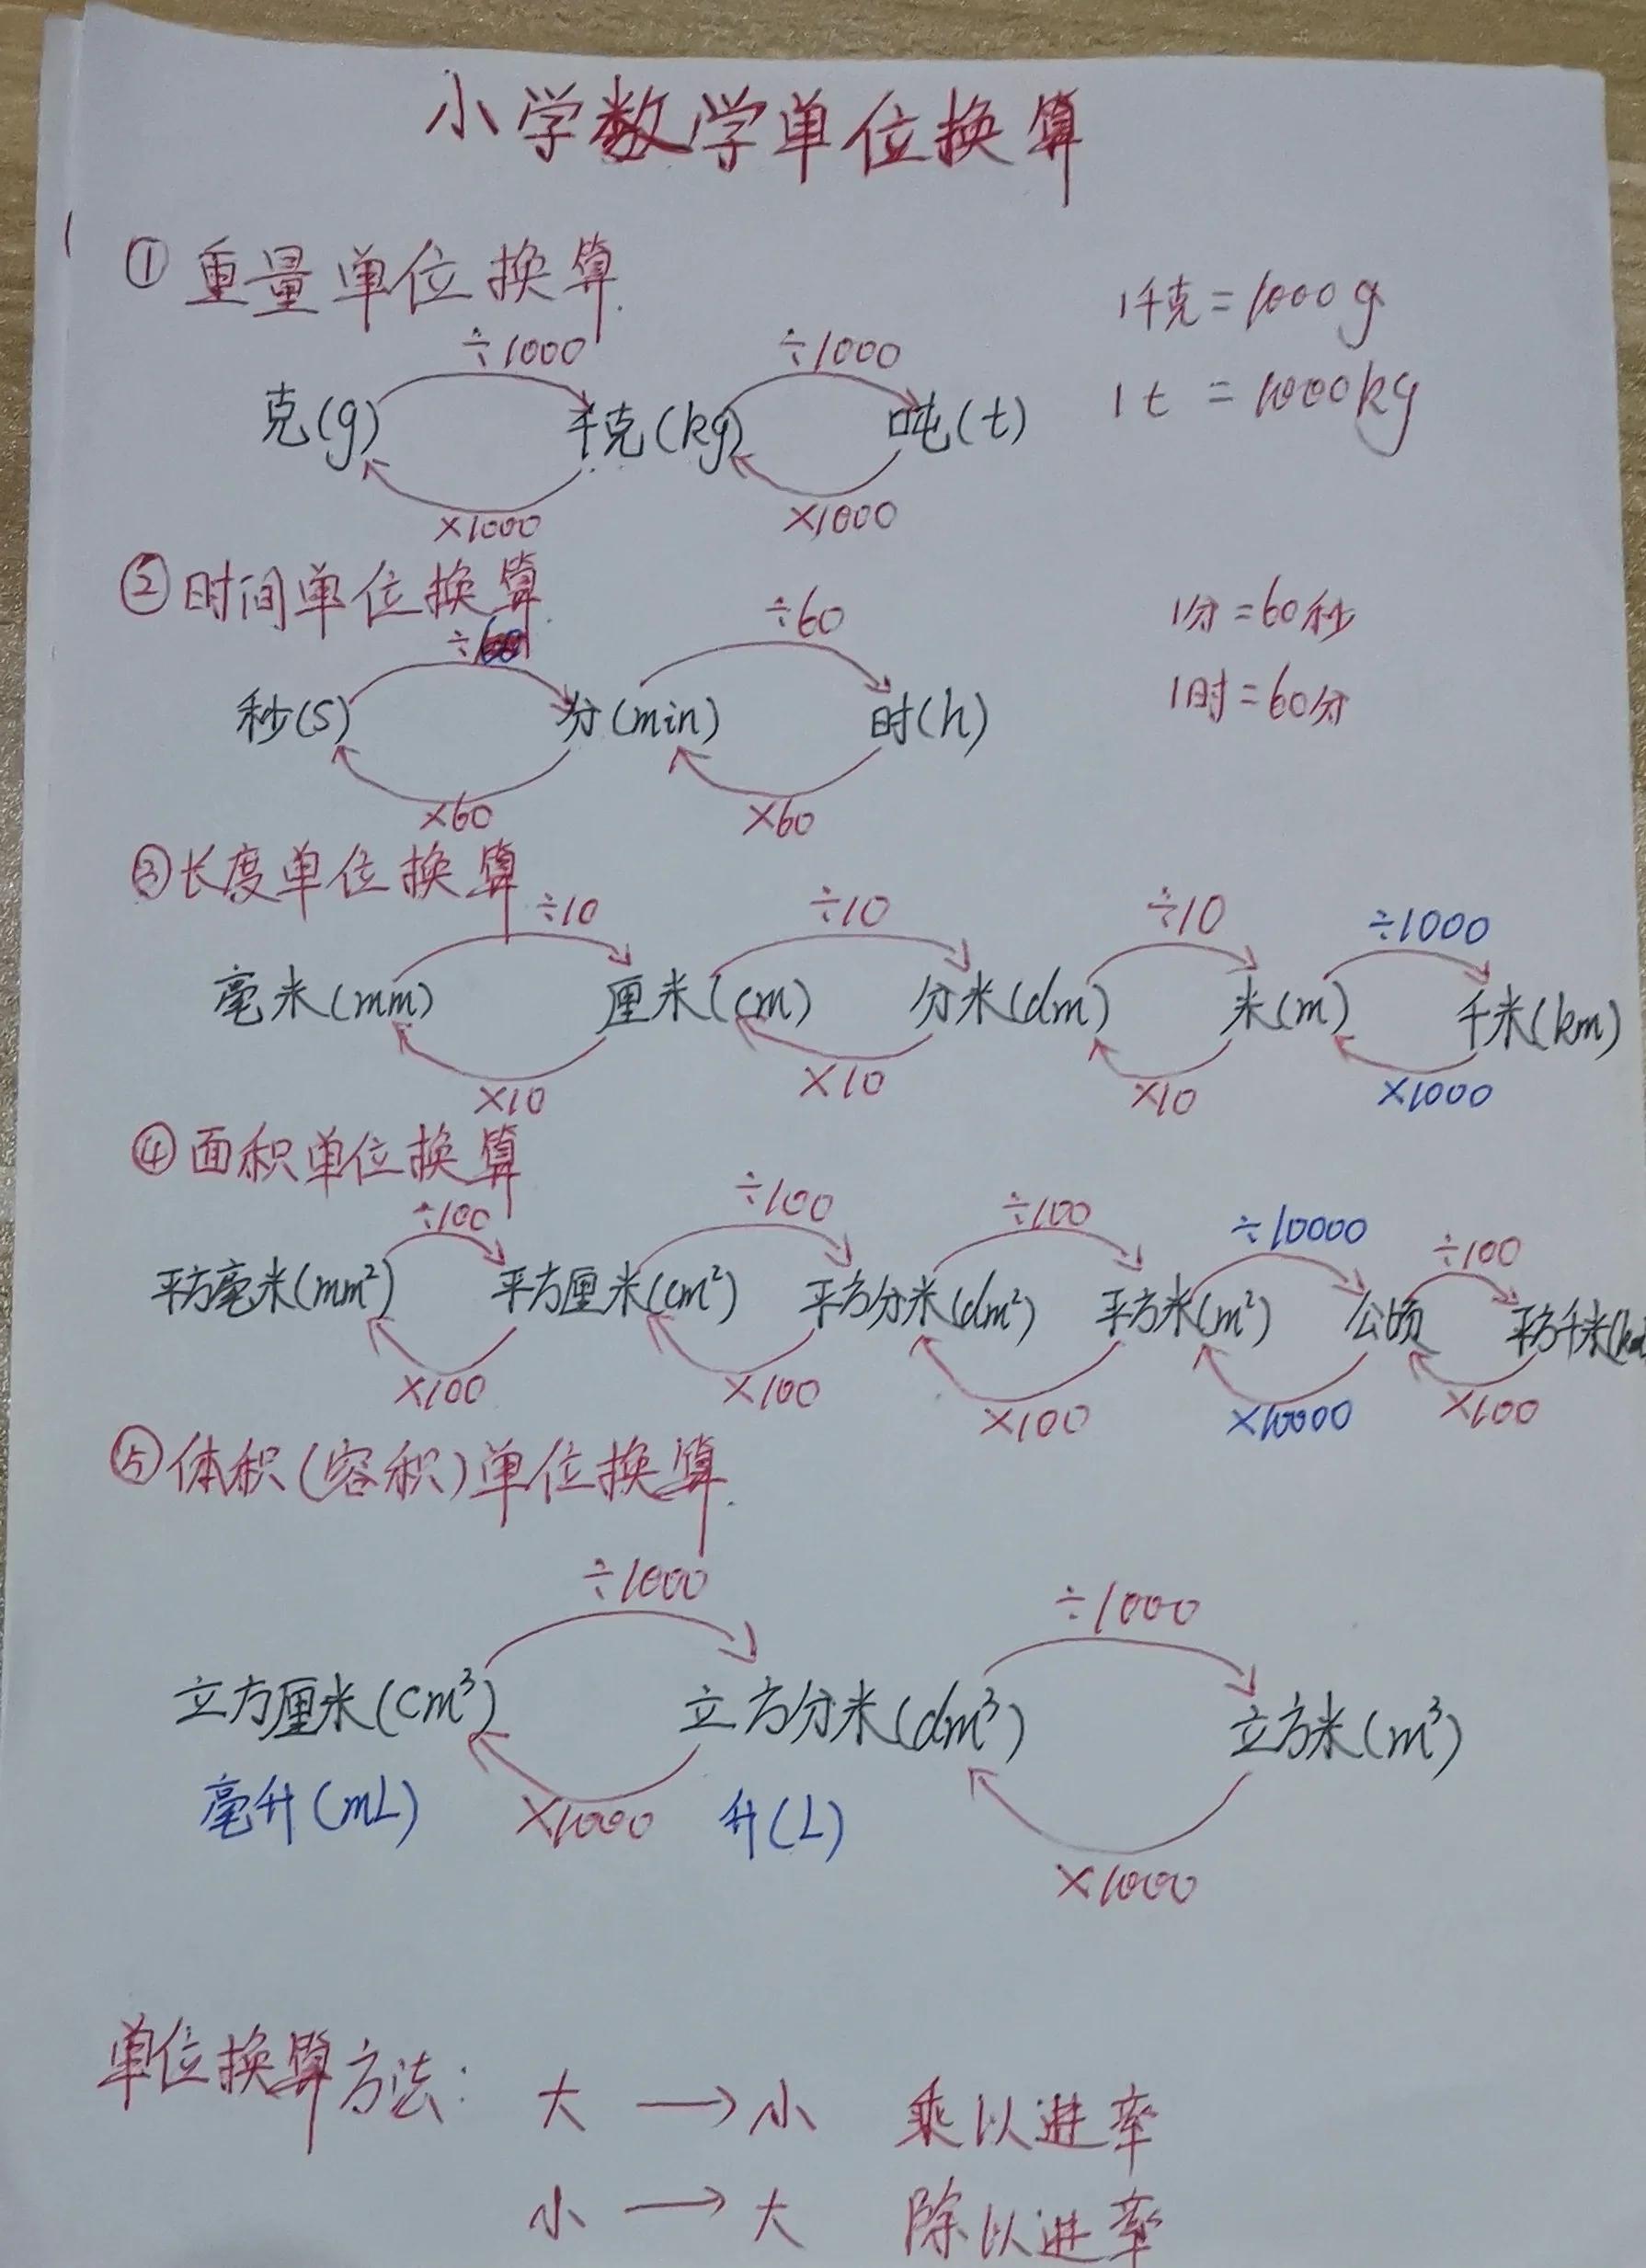 小学数学单位换算
①重量单位换算.
1千克=1000g
÷1000 ÷1000
克(g) 千克(kg) 吨(t)
1t=1000kg
×1000 ×1000
②时间单位换算.
1分=60秒
÷60 ÷60
秒(s) 分(min) 时(h)
1时=60分
×60 ×60
③长度单位换算
÷10 ÷10 ÷10 ÷1000
毫米(mm) 厘米(cm) 分米(dm) 米(m) 千米(km)
×10 ×10 ×10 ×1000
④面积单位换算
÷100 ÷100 ÷100 ÷10000 ÷100
平方毫米(mm²) 平方厘米(cm²) 平方分米(dm²) 平方米(m²) 公顷 平方千米
×100 ×100 ×100 ×10000 ×100
⑤体积(容积)单位换算.
÷1000 ÷1000
立方厘米(cm³) 立方分米(dm³) 立方米(m³)
毫升(mL) ×1000 升(L)
×1000
单位换算方法: 大→小 乘以进率
小→大 除以进率